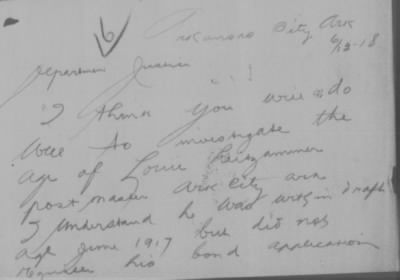 6
Arkansas City Ark
6/12-18
Department Justice
I think you will do
well to investigate the
age of Louie
postmaster Ark City Ark
I understand he was with in draft
age June 1917 but did not
his bond application